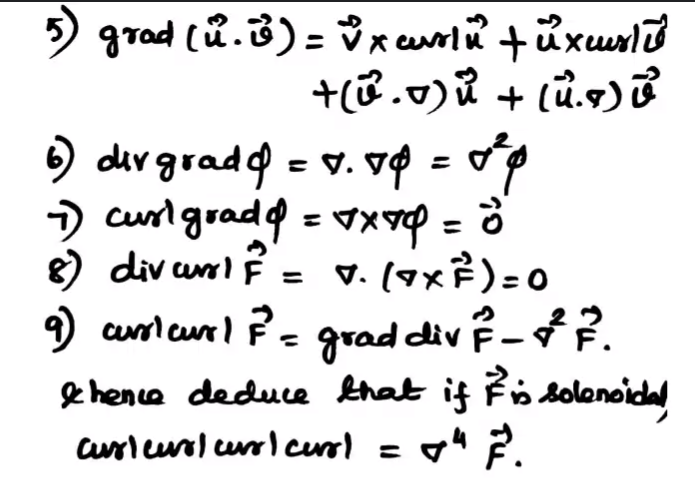 5) grad (u⃗ . v⃗) = v⃗ x curl u⃗ + u⃗ x curl v⃗
+ (v⃗ . ∇) u⃗ + (u⃗ . ∇) v⃗
6) div grad φ = ∇ . ∇φ = ∇²φ
7) curl grad φ = ∇ x ∇φ = 0⃗
8) div curl F⃗ = ∇ . (∇ x F⃗) = 0
9) curl curl F⃗ = grad div F⃗ - ∇² F⃗.
& hence deduce that if F⃗ is solenoidal,
curl curl curl curl = ∇⁴ F⃗.